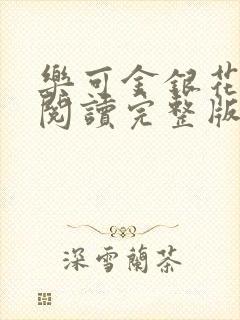 樂可金銀花
閱讀完整版
深雪蘭茶